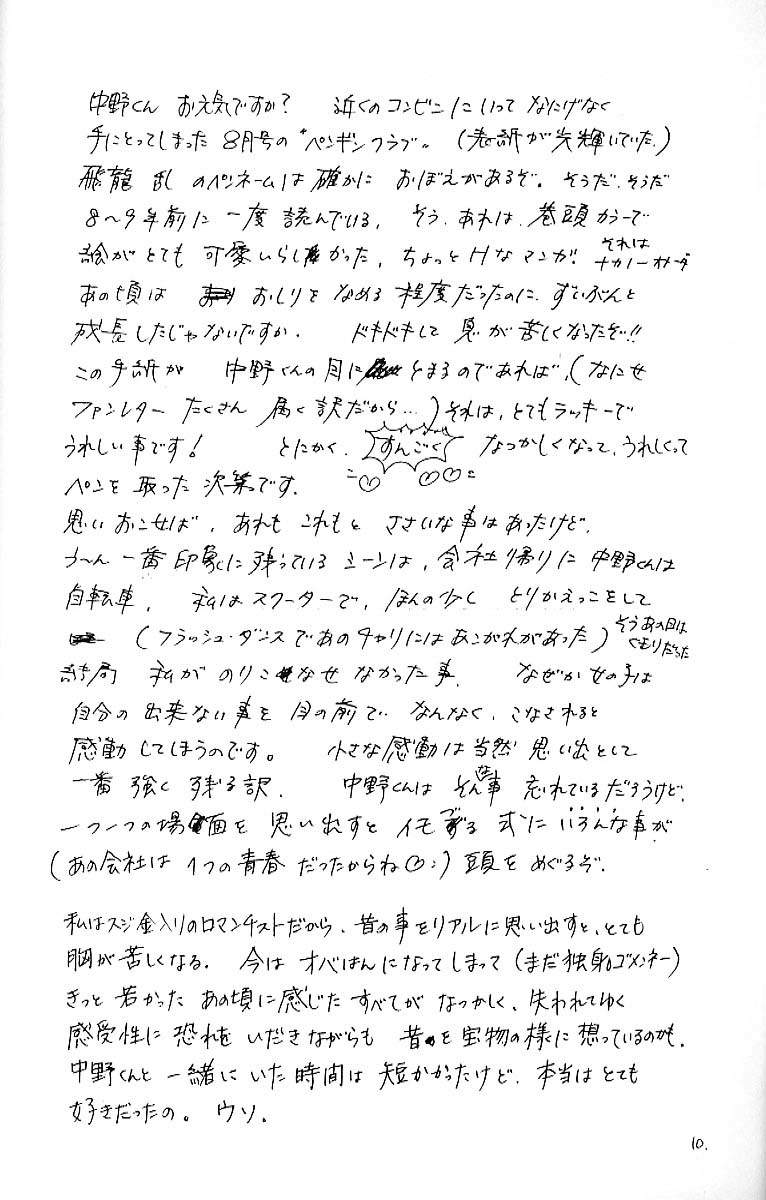 中野くん お元気ですか? 近くのコンビニにいって なにげなく
手にとってしまった 8月号の "ペンギンクラブ" (表紙が光輝いていた。)
飛龍 乱 のペンネームは確かに おぼえがあるぞ。そうだ、そうだ
8〜9年前に 一度 読んでいる。そう、あれは、巻頭カラーで
絵がとても 可愛いらしかった、ちょっとHなマンガ。それは
ナカノーオサーダ
あの頃は おしりを なめる 程度だったのに、ずいぶんと
成長したじゃないですか。 ドキドキして 息が 苦しくなったぞ!!
この手紙が 中野くんの目に とまるのであれば、(なにせ
ファンレター たくさん 届く訳だから…)それは、とてもラッキーで
うれしい事です! とにかく、すんごく なつかしくなって、うれしくって
ペンを 取った 次第です。
思い おこせば、あれも これもと ささいな事はあったけど、
う〜ん 一番 印象に残っている シーンは、会社帰りに 中野くんは
自転車、 私はスクーターで、ほんの少し とりかえっこをして
(フラッシュ・ダンスであのチャリにはあこがれがあった) そうあの日は
くもりだった
結局 私が のりこなせ なかった事。 なぜか女の子は
自分の 出来ない事を 目の前で なんなく、こなされると
感動してしまうのです。 小さな感動は当然 思い出として
一番 強く 残る訳。 中野くんは そんな事 忘れているだろうけど、
一つ一つの場面を 思い出すと イモづる 式に いろんな事が
(あの会社は 1つの青春 だったからね) 頭を めぐるぞ。
私はスジ金入りのロマンチストだから、昔の事をリアルに思い出すと、とても
胸が 苦しくなる。 今は オバはんになってしまって(まだ独身ゴメンネー)
きっと 若かった あの頃に感じた すべてが なつかしく、失われてゆく
感受性に 恐れを いだきながらも 昔を宝物の様に 想っているのかも。
中野くんと 一緒に いた時間は 短かかったけど、本当は とても
好きだったの。 ウソ。
10.